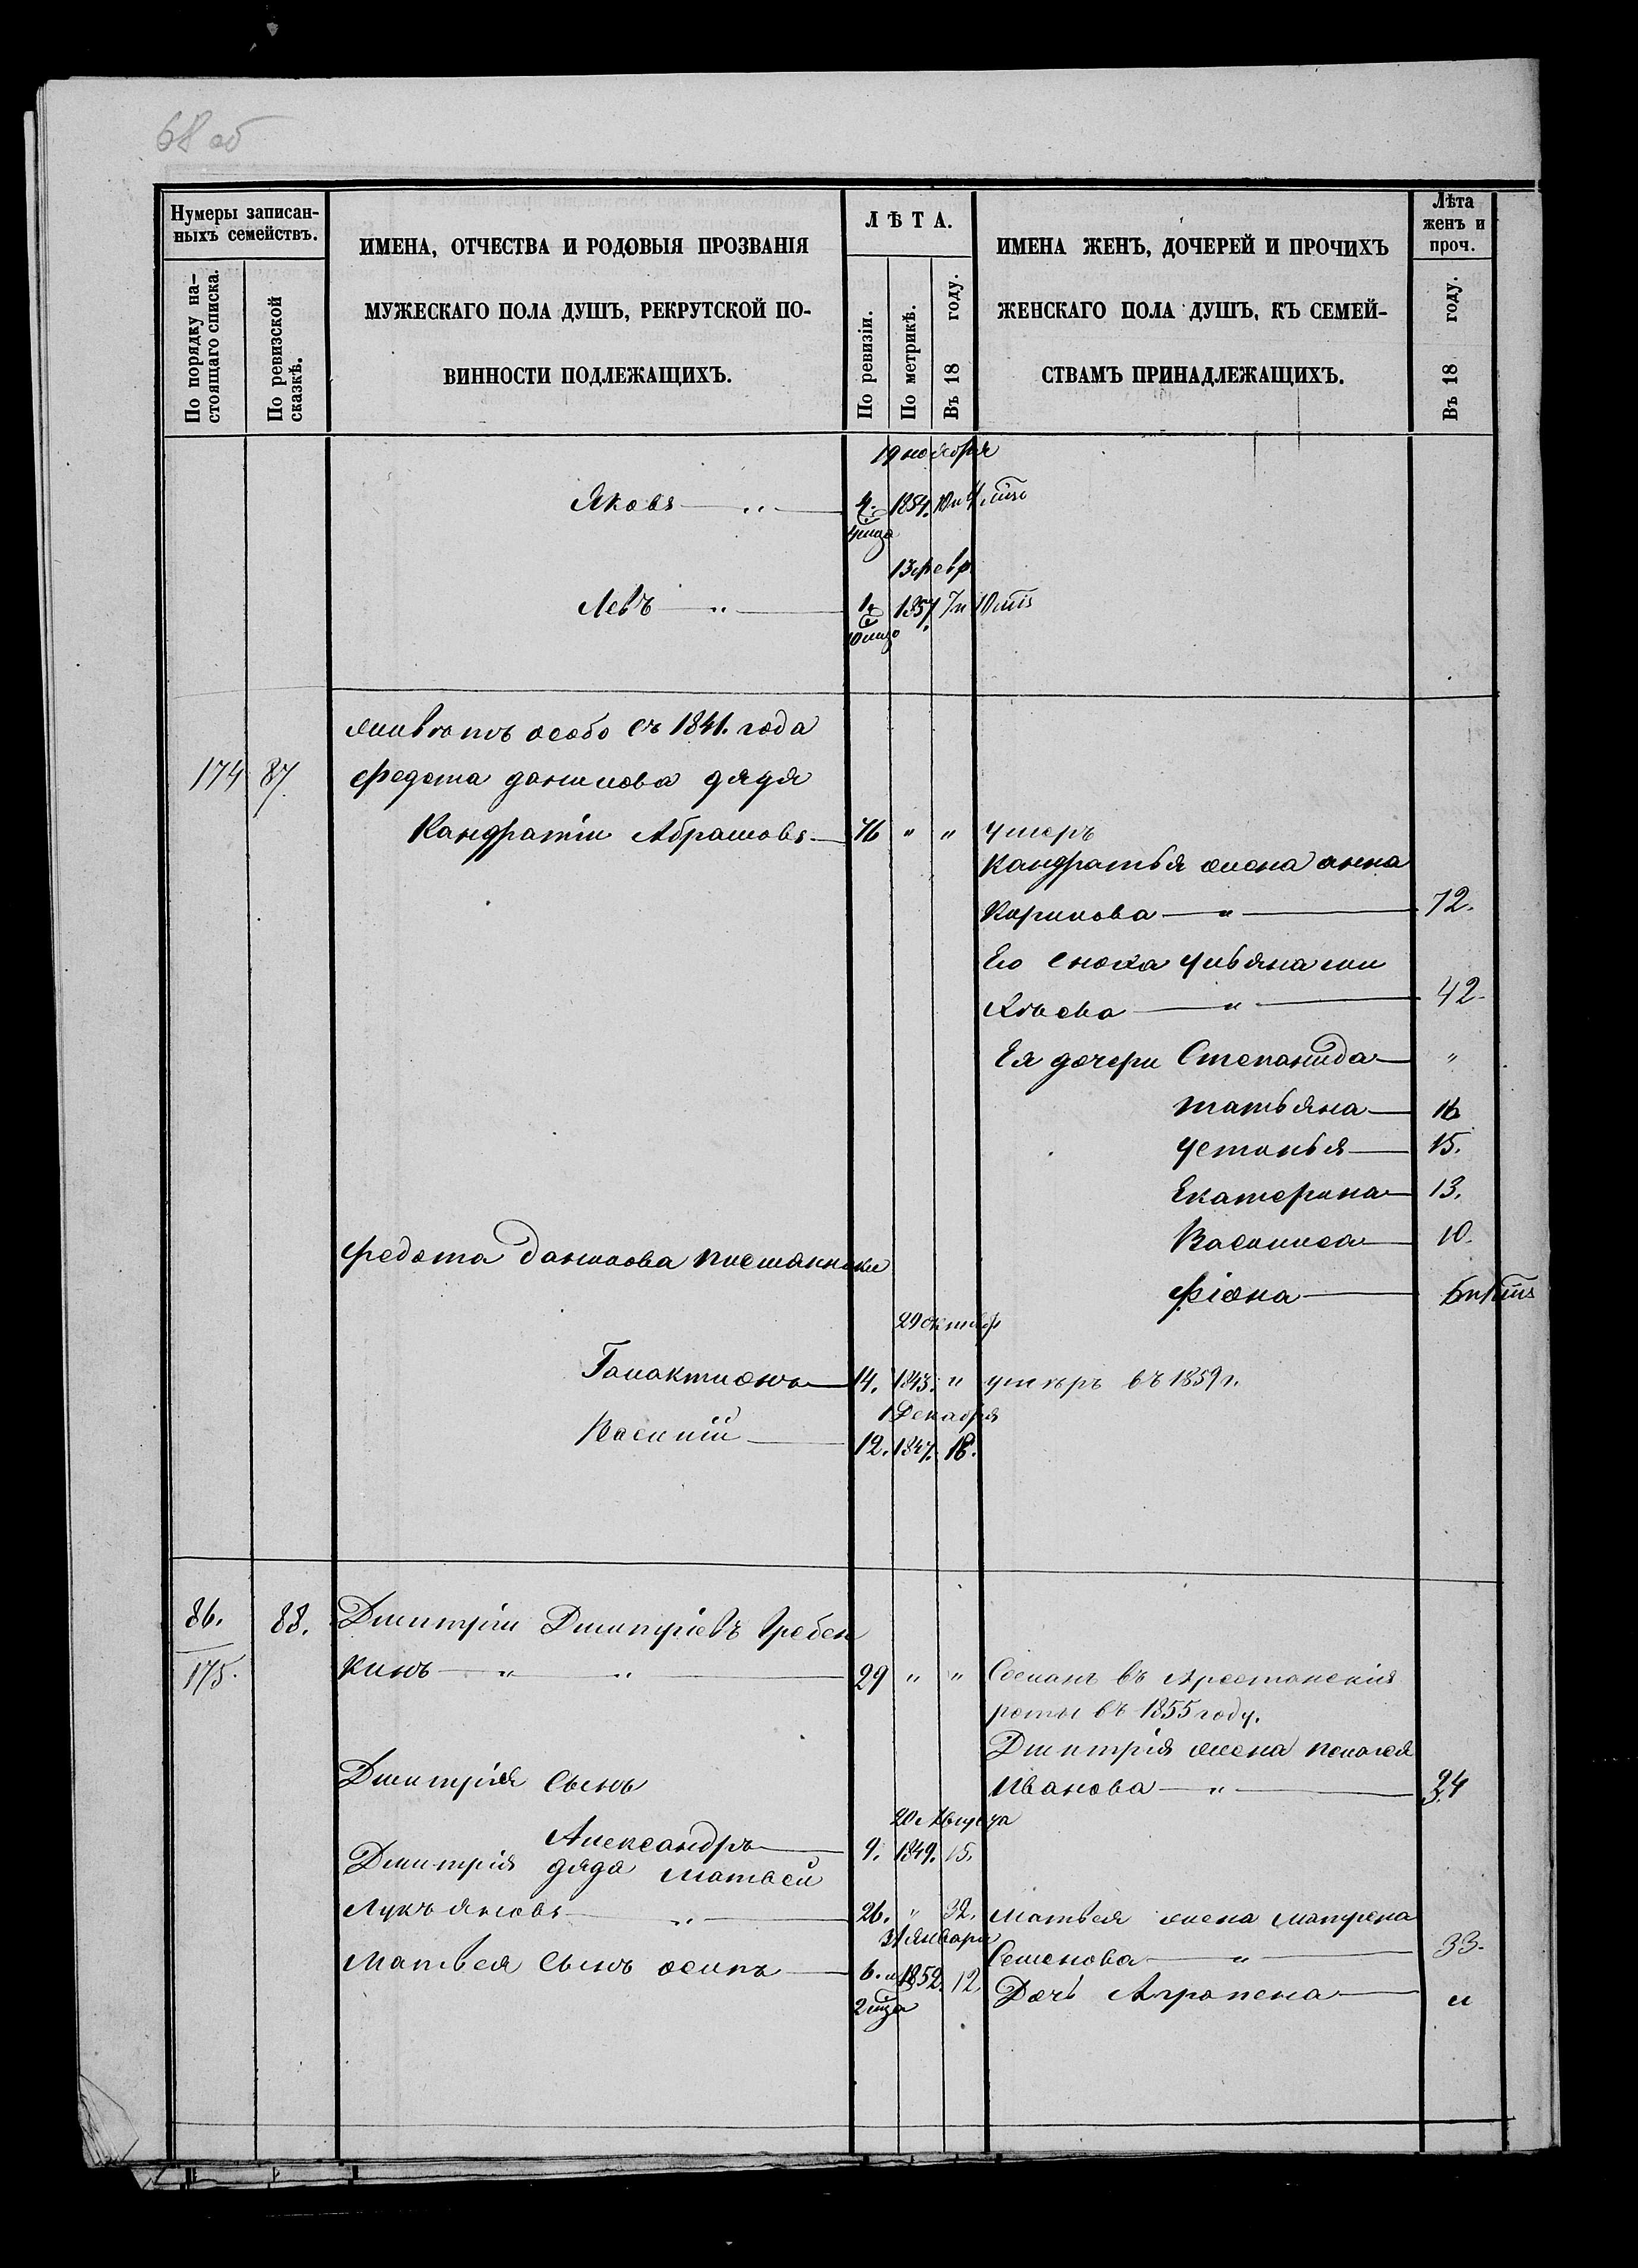 68 об
Нумеры записан-
ныхъ семействъ.
По порядку на-
стоящаго списка.
По ревизской
сказкѣ.
ИМЕНА, ОТЧЕСТВА И РОДОВЫЯ ПРОЗВАНІЯ
МУЖЕСКАГО ПОЛА ДУШЪ, РЕКРУТСКОЙ ПО-
ВИННОСТИ ПОДЛЕЖАЩИХЪ.
ЛѢТА.
По ревизіи.
По метрикѣ.
Въ 18 году.
ИМЕНА ЖЕНЪ, ДОЧЕРЕЙ И ПРОЧИХЪ
ЖЕНСКАГО ПОЛА ДУШЪ, КЪ СЕМЕЙ-
СТВАМЪ ПРИНАДЛЕЖАЩИХЪ.
Лѣта
женъ и
проч.
Въ 18 году.
19 ноября
Яковъ — " — 4. 1854. 10 и 4
13 февр
Левъ — " — 1. 1857 7 и 10
особо съ 1841. года
174 87 Федота данилова дядя
Кандратіи Абрамовъ — 76 " " умеръ
Кандратья жена анна
Карпилова — " — 72.
Ево сноха ульяна
— " — 42.
Ея дочери Степанида — "
татьяна — 16
устинья — 15.
Екатерина — 13.
Василиса — 10.
Федота Данилова племянники
Фіона — 6 и 1
29 октябр
Галактионъ — 14. 1843. " умеръ въ 1859 г.
1 Декабря
Василіи — 12. 1847. 16.
86. 88. Дмитріи Дмитріевъ Гребен
175. кинъ — " — " — 29 " " Сосланъ въ Арестанскія
роты въ 1855 году.
Дмитрія жена пелагея
Дмитрія Сынъ Иванова — " — 34
20 Августа
Александръ — 9. 1849. 15.
Дмитрія дядя Матвеи
Лукъяновъ — " — 26. " 32. Матвея жена матрена
31 января
Семенова — " — 33.
Матвея Сынъ осипъ — 6. и 1852. 12. Дочь Агропена — "
2 мца